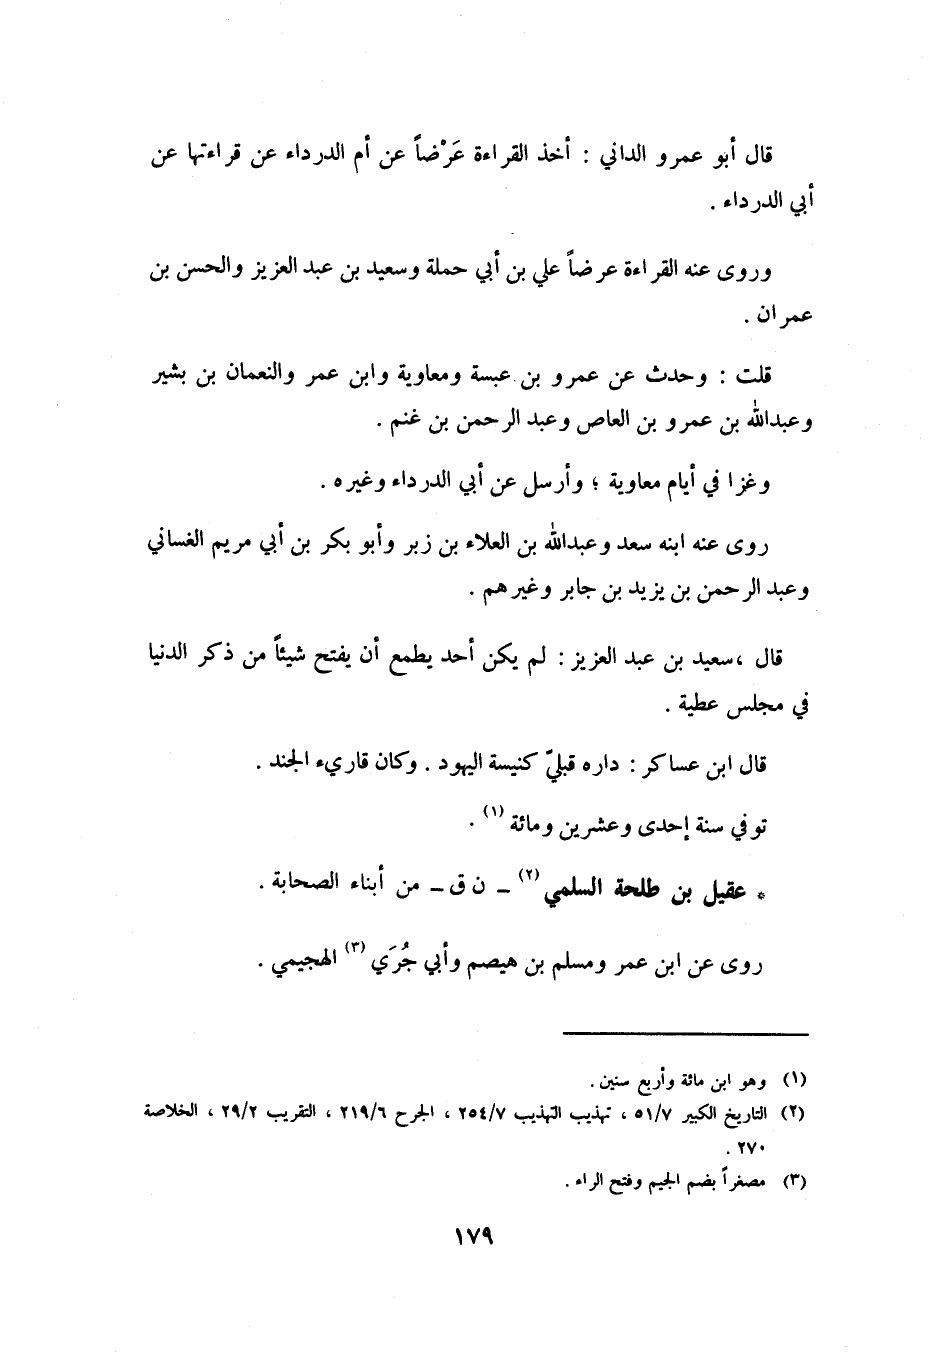 قال أبو عمرو الداني : أخذ القراءة عَرْضاً عن أم الدرداء عن قراءتها عن
أبي الدرداء .
وروى عنه القراءة عرضاً علي بن أبي حملة وسعيد بن عبد العزيز والحسن بن
عمران .
قلت : وحدث عن عمرو بن عبسة ومعاوية وابن عمر والنعمان بن بشير
وعبدالله بن عمرو بن العاص وعبد الرحمن بن غنم .
وغزا في أيام معاوية ؛ وأرسل عن أبي الدرداء وغيره .
روى عنه ابنه سعد وعبدالله بن العلاء بن زبر وأبو بكر بن أبي مريم الغساني
وعبد الرحمن بن يزيد بن جابر وغيرهم .
قال ،سعيد بن عبد العزيز : لم يكن أحد يطمع أن يفتح شيئاً من ذكر الدنيا
في مجلس عطية .
قال ابن عساكر : داره قبليّ كنيسة اليهود . وكان قاريء الجند .
توفي سنة إحدى وعشرين ومائة (١) .
* عقيل بن طلحة السلمي (٢) ـ ن ق ـ من أبناء الصحابة .
روى عن ابن عمر ومسلم بن هيصم وأبي جُرَي (٣) الهجيمي .
(١) وهو ابن مائة وأربع سنين .
(٢) التاريخ الكبير ٥١/٧ ، تهذيب التهذيب ٢٥٤/٧ ، الجرح ٢١٩/٦ ، التقريب ٢٩/٢ ، الخلاصة
٢٧٠ .
(٣) مصغراً بضم الجيم وفتح الراء .
١٧٩